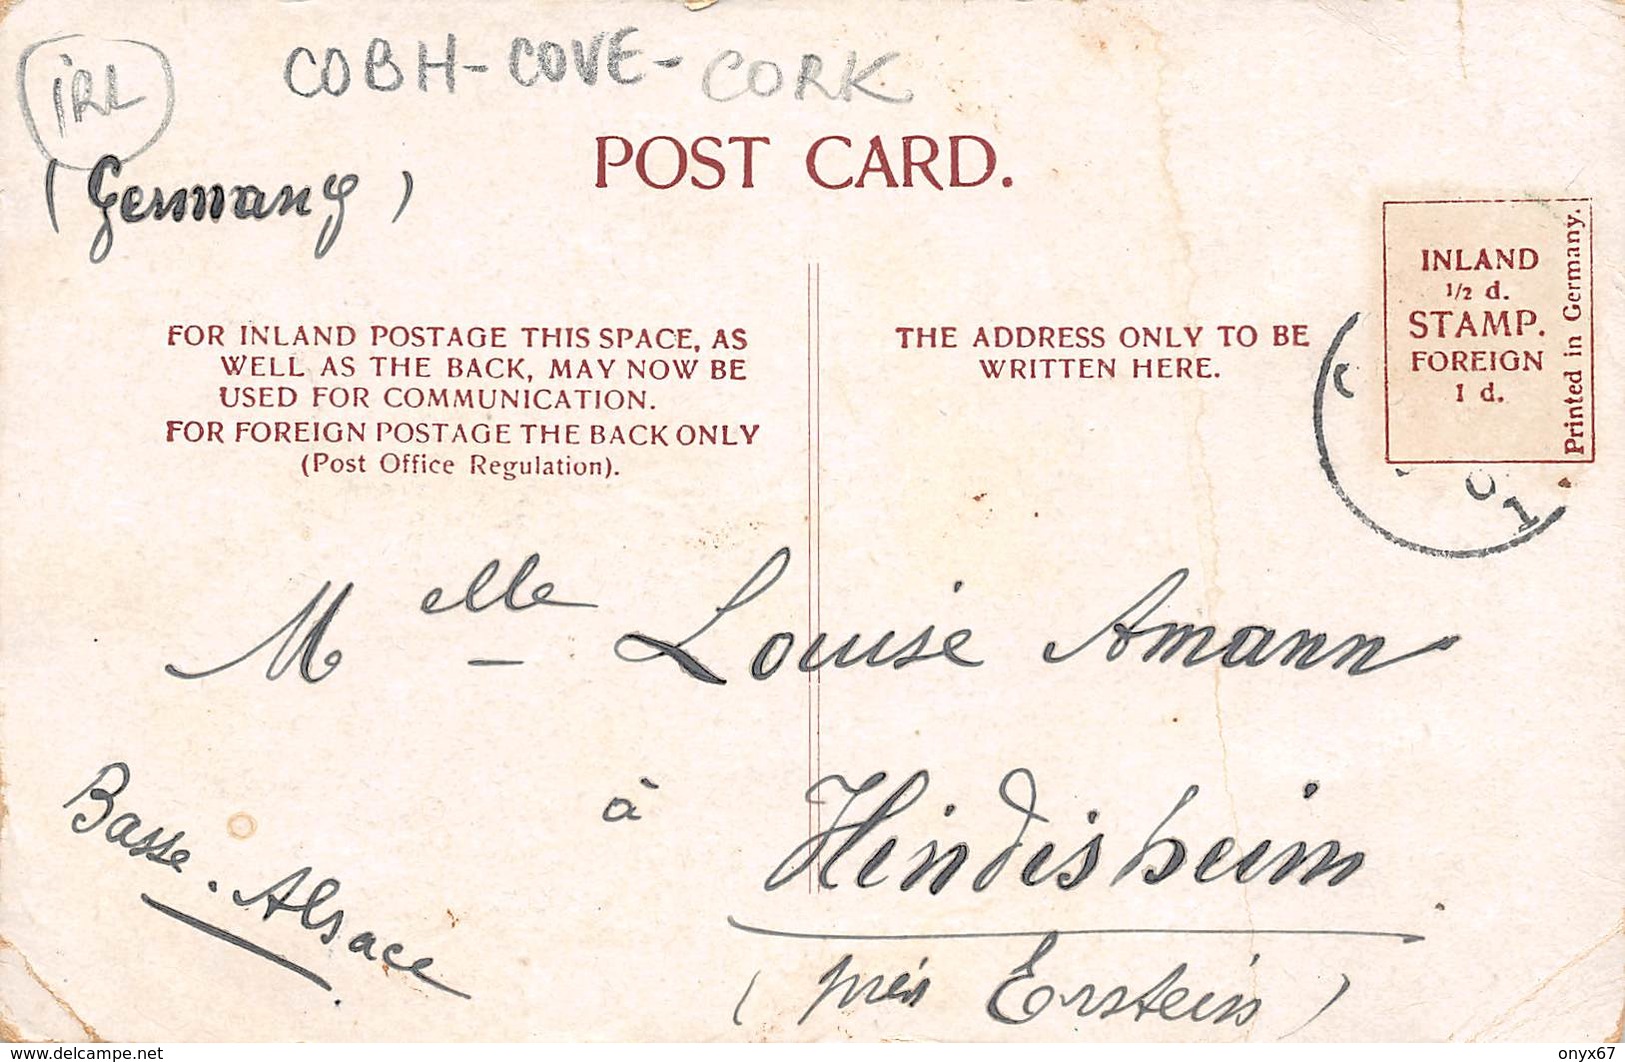 IRL
COBH-COVE-CORK
POST CARD.
(Germany)
INLAND
1/2 d.
STAMP.
FOREIGN
1 d.
Printed in Germany.
FOR INLAND POSTAGE THIS SPACE, AS
WELL AS THE BACK, MAY NOW BE
USED FOR COMMUNICATION.
FOR FOREIGN POSTAGE THE BACK ONLY
(Post Office Regulation).
THE ADDRESS ONLY TO BE
WRITTEN HERE.
Melle Louise Amann
à Hindisheim
(près Erstein)
Basse-Alsace
www.delcampe.net
onyx67